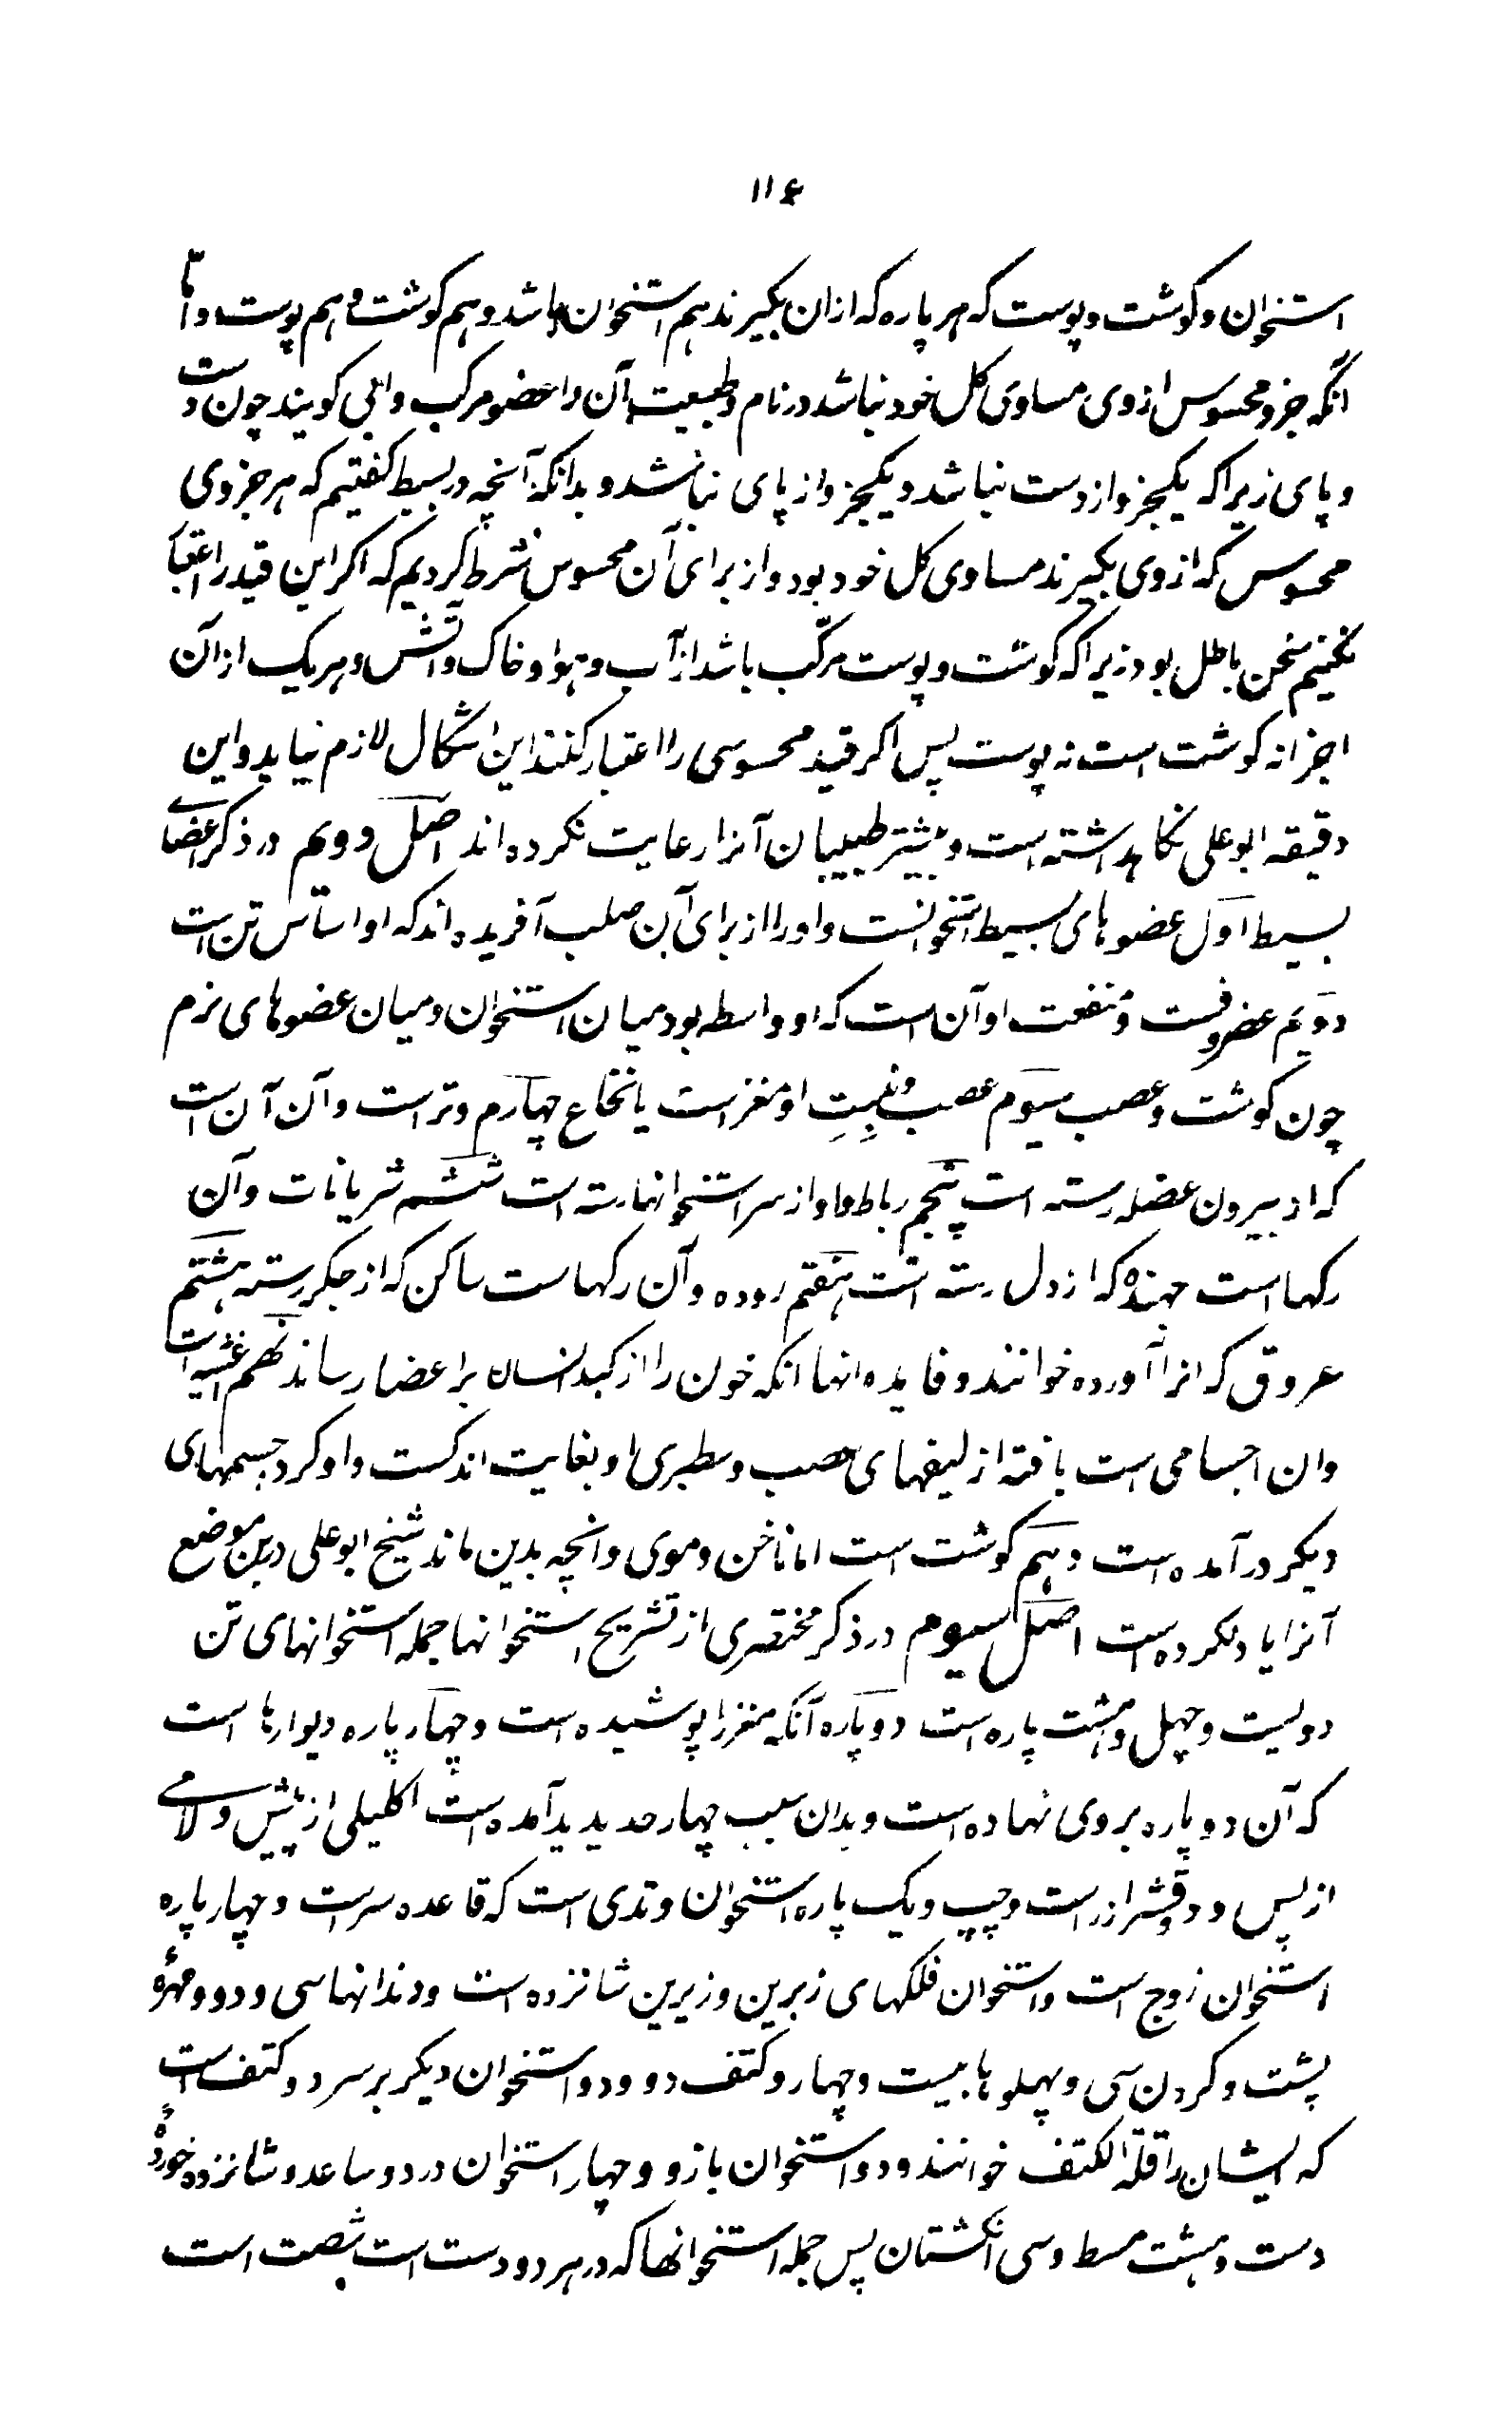 ۱۱۶
استخوان و کوشت و پوست که هر پاره که ازان بکیرند هم استخوان باشد و هم کوشت و هم پوست و امّا
انکه جزو محسوس ازوی مساوی کل خود نباشد در نام و طبیعت آن را عضو مرکب و الی کویند چون دست
و پای زیرا که یکجزو از دست نباشد و یکجزو از پای نباشد و بدانکه آنچه در بسیط کفتیم که هر جزوی
محسوس که ازوی بکیرند مساوی کل خود بود و از برای آن محسوس شرط کردیم که اکر این قید را اعتبا
نکنیم سخن باطل بود زیرا که کوشت و پوست مرکّب باشد از آب و هوا و خاک و آتش و هر یک از آن
اجزا نه کوشت است نه پوست پس اکر قید محسوسی را اعتبار کنند این اشکال لازم نیاید و این
دقیقه ابو علی نکاهداشته است و بیشتر طبیبان آنرا رعایت نکرده اند اصل دویم در ذکر اعضای
بسیط اول عضوهای بسیط استخوانست و اورا از برای آن صلب آفریده اند که او اساس تن است
دویم غضروفست و منفعت او آن است که او واسطه بود میان استخوان و میان عضوهای نرم
چون کوشت و عصب سیوم عصب و منبت او مغز است یا نخاع چهارم وتر است و آن آن است
که از بیرون عضله رسته است پنجم رباطها و از سر استخوانها رسته است ششم شریانات و آن
رکها است جهنده که از دل رسته است هفتم روده و آن رکهاست ساکن که از جکر رسته هشتم
عروق که انرا آورده خوانند و فایده انها انکه خون را از کبد انسان بر اعضا رساند نهم اغشیه است
وان اجسامی است بافته از لیفهای عصب و سطبری او بغایت اندکست و او کرد جسمهای
دیکر درآمده است دهم کوشت است اما ناخن و موی و انچه بدین ماند شیخ ابو علی درین موضع
آنرا یاد نکرده است اصل سیوم در ذکر مختصری از تشریح استخوانها جمله استخوانهای تن
دویست و چهل و هشت پاره است دو پاره آنکه مغز را پوشیده است و چهار پاره دیوارها است
که آن دو پاره بروی نهاده است و بدان سبب چهار حد پدید آمده است اکلیلی از پیش و لامی
از پس و دو قشر از راست و چپ و یک پاره استخوان وتدی است که قاعده سر است و چهار پاره
استخوان زوج است و استخوان فلکهای زبرین و زیرین شانزده است و دندانها سی و دو و مهرهٔ
پشت و کردن سی و پهلوها بیست و چهار و کتف دو و دو استخوان دیکر بر سر دو کتف است
که ایشان را قلة الکتف خوانند و دو استخوان بازو و چهار استخوان در دو ساعد و شانزده خوردهٔ
دست و هشت مسط و سی انکشتان پس جمله استخوانها که در هر دو دست است شصت است